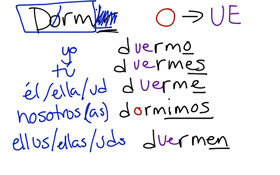 Dorm O → UE
yo duermo
tú duermes
él/ella/ud duerme
nosotros(as) dormimos
ellos/ellas/uds duermen